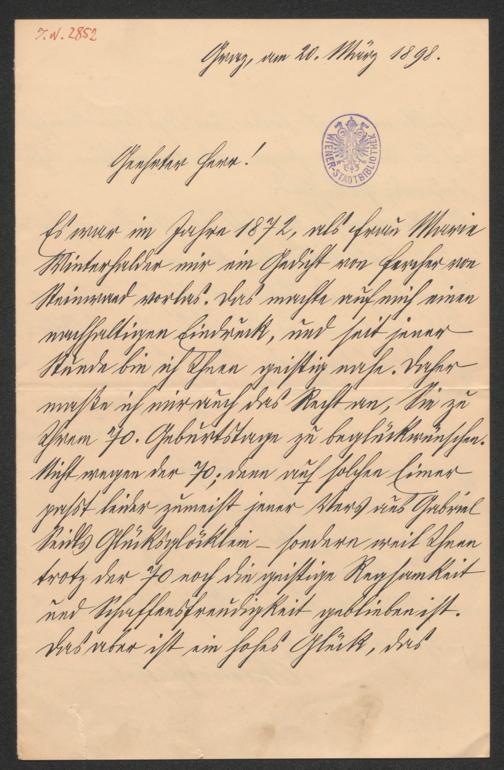 I.N. 2852
Graz, am 20. März 1898.
WIENER-STADTBIBLIOTHEK
Geehrter Herr!
Es war im Jahre 1872, als Frau Marie
Winterhalder mir ein Gedicht von Fercher von
Steinwand vorlas. Das machte auf mich einen
nachhaltigen Eindruck, und seit jener
Stunde bin ich Ihnen geistig nahe. Daher
maße ich mir auch das Recht an, Sie zu
Ihrem 70. Geburtstage zu beglückwünschen.
Nicht wegen der 70; denn auf solchen Eimer
passt leider zumeist jener Vers aus Gabriel
Seidls Glücksglöcklein – sondern weil Ihnen
trotz der 70 noch die geistige Regsamkeit
und Schaffensfreudigkeit geblieben ist.
Das aber ist ein hohes Glück, das